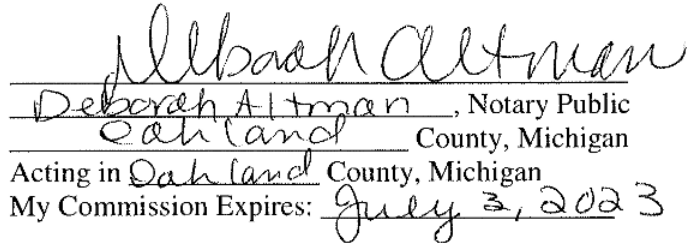 Deborah Altman
Deborah Altman, Notary Public
Oakland County, Michigan
Acting in Oakland County, Michigan
My Commission Expires: July 3, 2023